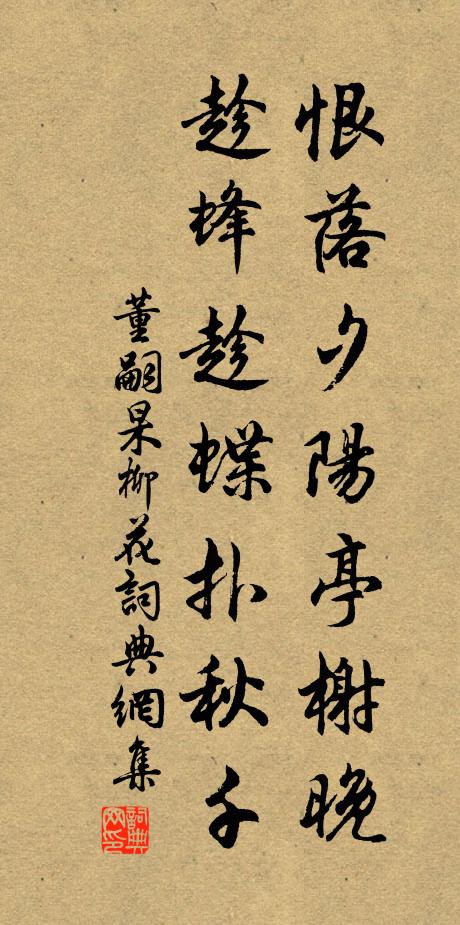 恨落夕陽亭榭晚
趁蜂趁蝶扑秋千
董嗣杲柳花詞典網集
詞典網印